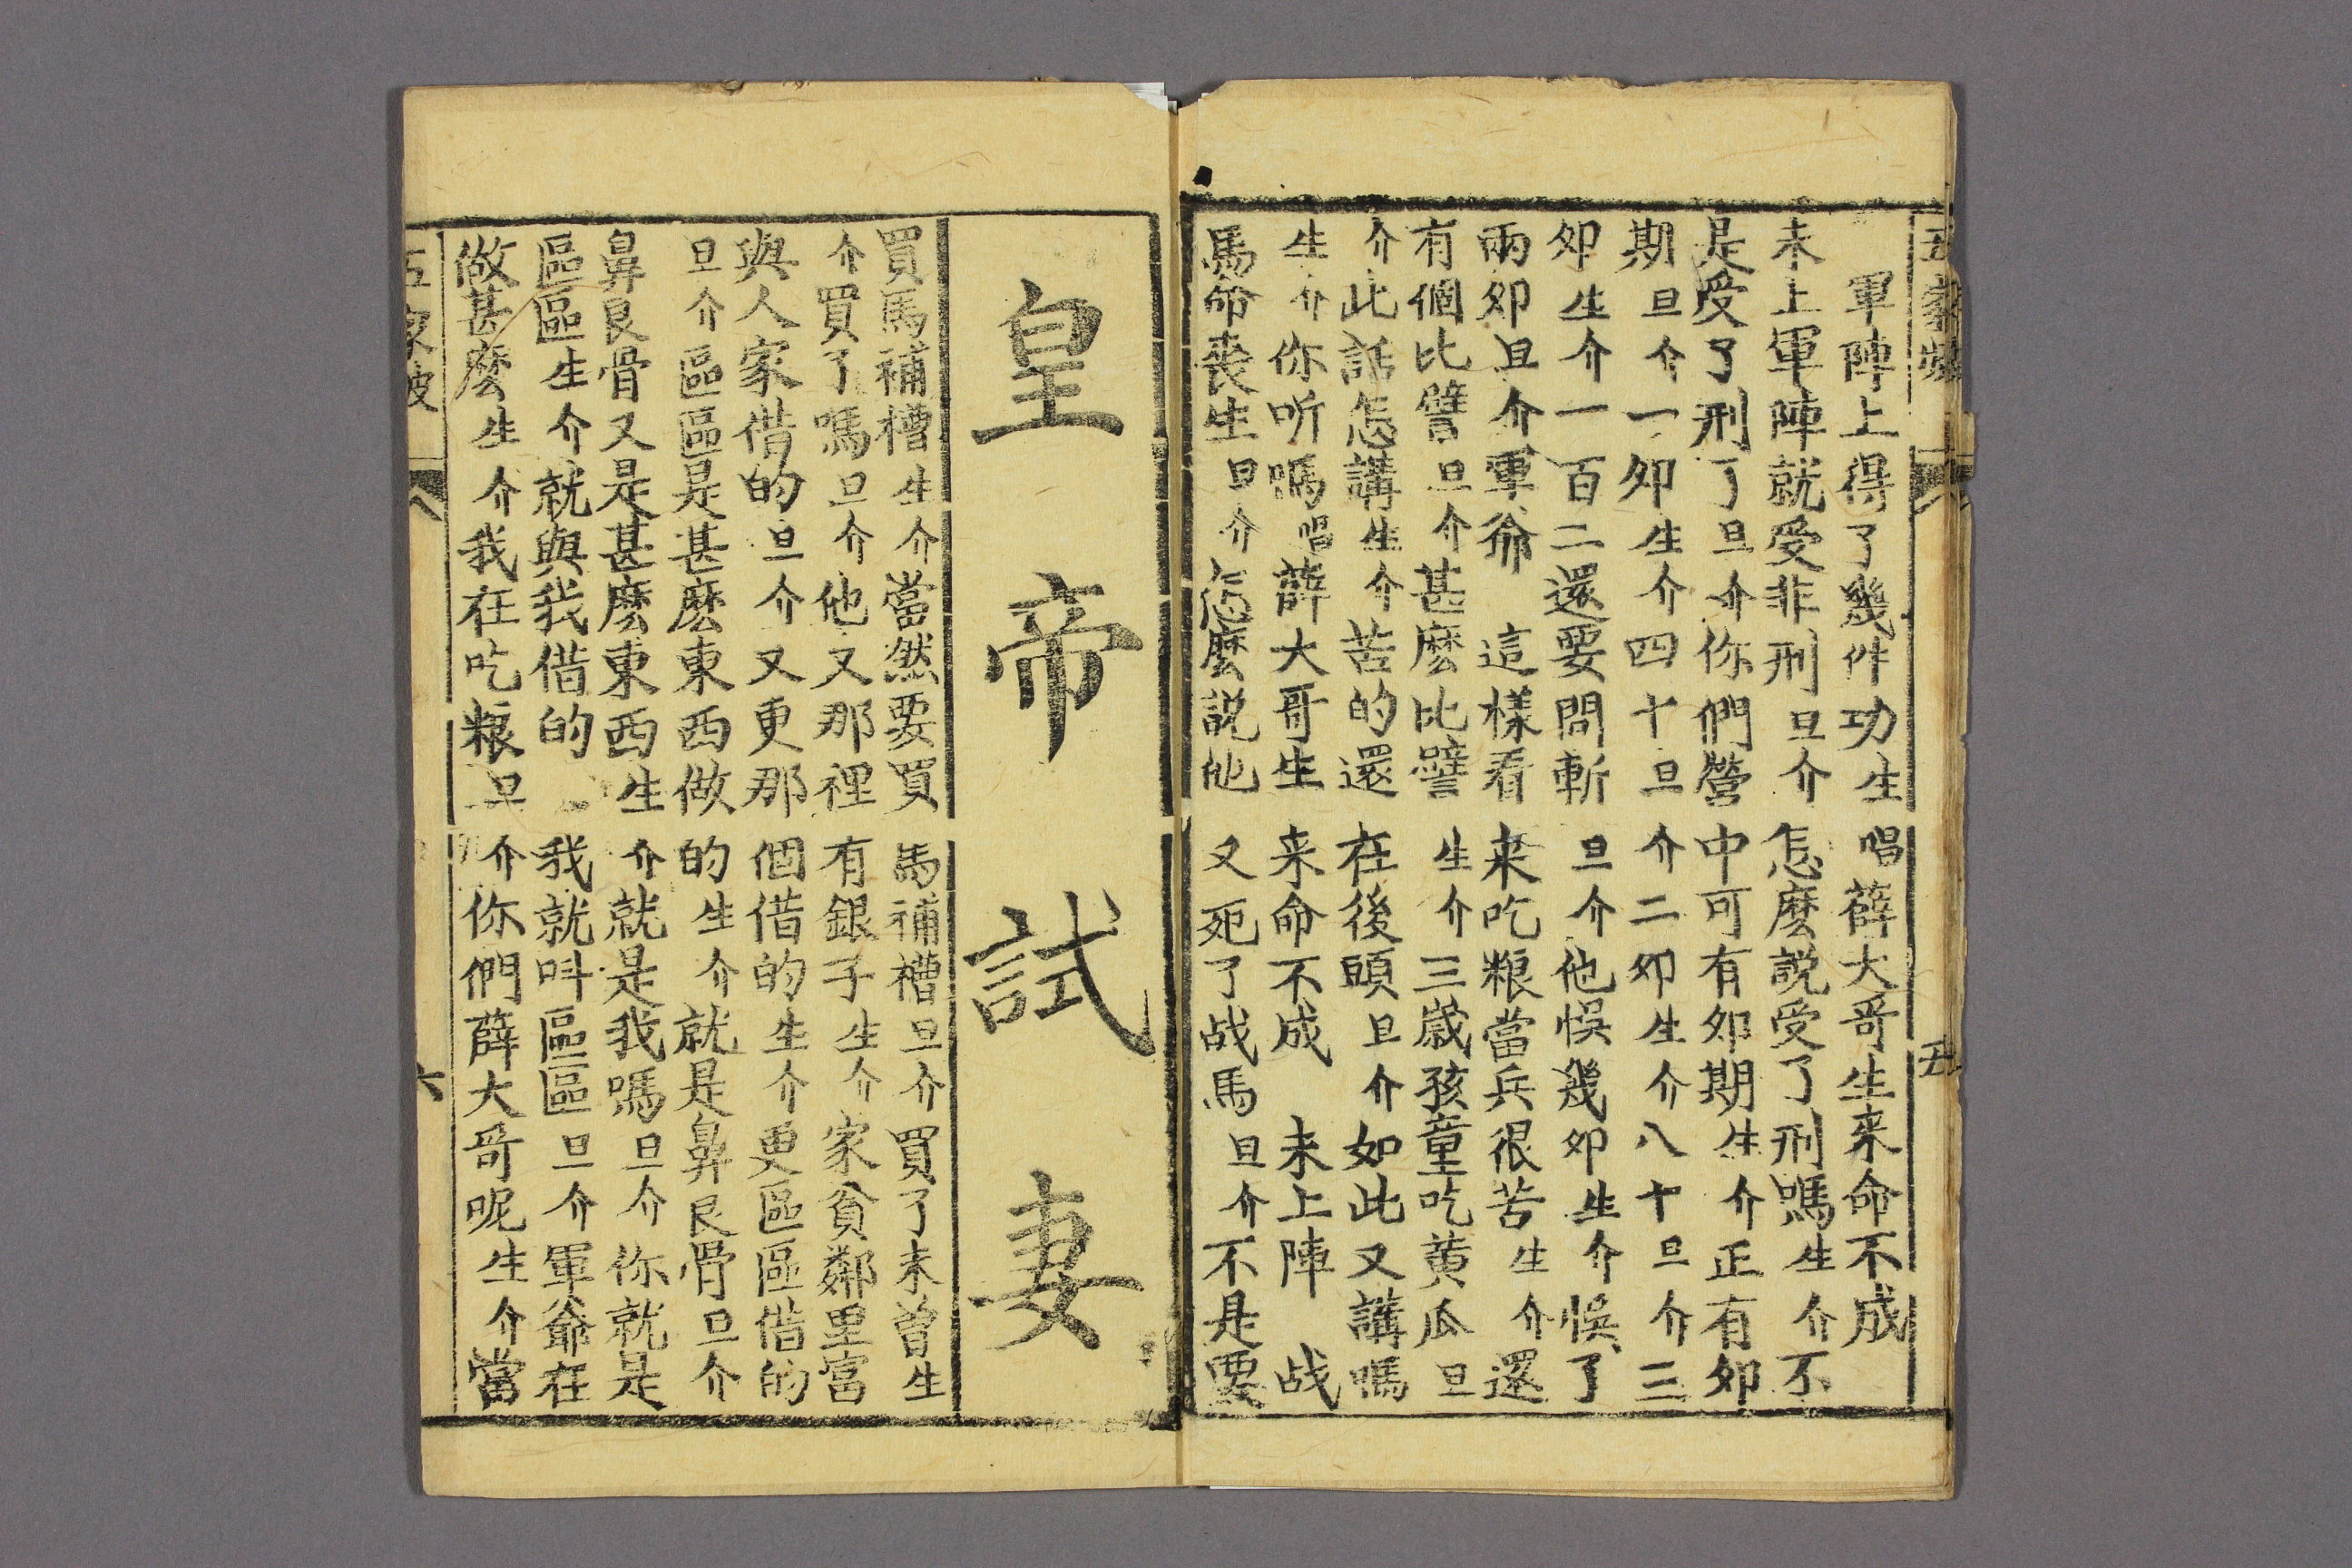 五
軍陣上得了幾件功生唱薛大哥生来命不成
未上軍陣就受非刑旦介怎麽説受了刑嗎生介不
是受了刑了旦介你們營中可有夘期生介正有夘
期旦介一夘生介四十旦介二夘生介八十旦介三
夘生介一百二還要問斬旦介他悞幾夘生介悞了
兩夘旦介軍爺這樣看来吃粮當兵很苦生介還
有個比譬旦介甚麽比譬生介三歲孩童吃黄瓜旦
介此話怎講生介苦的還在後頭旦介如此又講嗎
生介你听嗎唱薛大哥生来命不成未上陣战
馬命喪生旦介怎麽説他又死了战馬旦介不是要
皇帝試妻
買馬補槽生介當然要買馬補槽旦介買了未曾生
介買了嗎旦介他又那裡有銀子生介家貧鄰里富
與人家借的旦介又更那個借的生介更區區借的
旦介區區是甚麽東西做的生介就是鼻艮骨旦介
鼻艮骨又是甚麽東西生介就是我嗎旦介你就是
區區生介就與我借的我就呌區區旦介軍爺在
做甚麽生介我在吃粮旦介你們薛大哥呢生介當
六